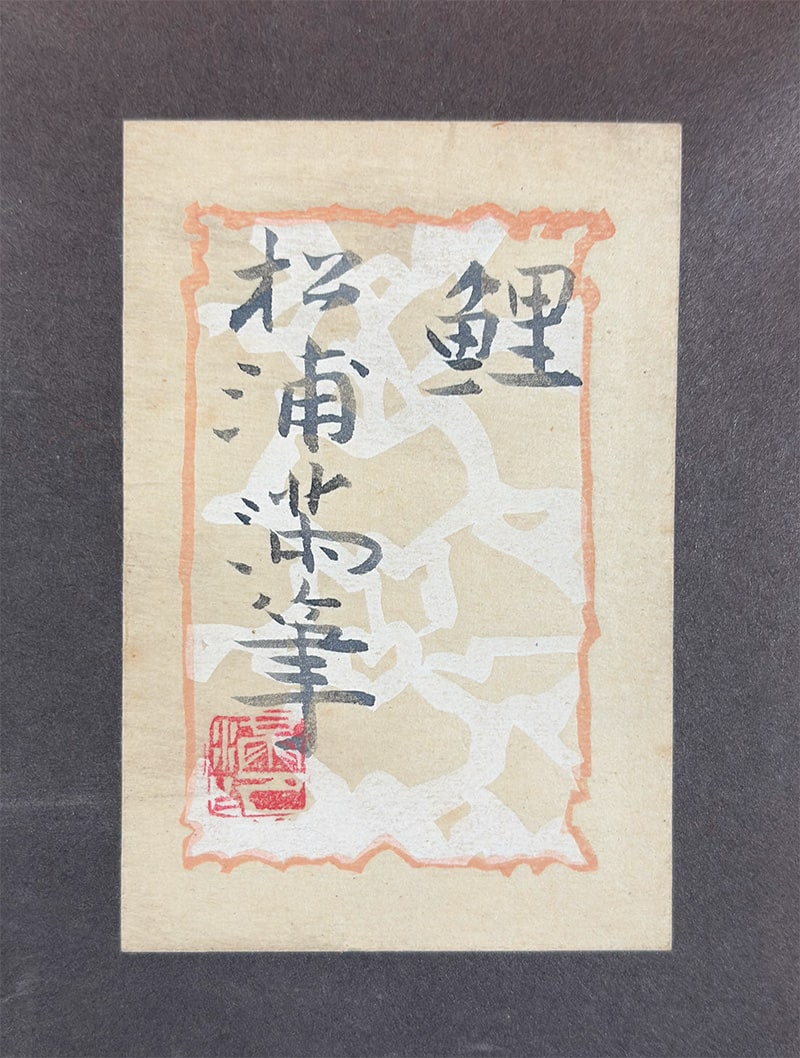 鯉
松浦満筆